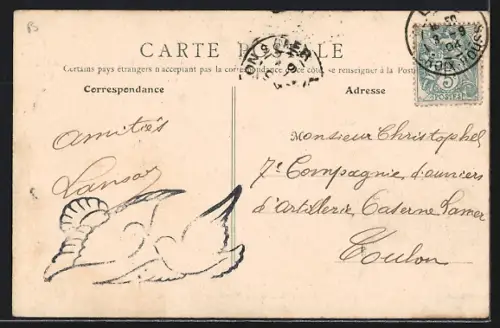 CARTE POSTALE
Certains pays étrangers n'acceptant pas la correspondance de ce côté, se renseigner à la Poste
Correspondance
Adresse
Amitiés
Lansoy
Monsieur Christophel
7e Compagnie d'ouvriers
d'Artillerie, Caserne Lamer
Toulon